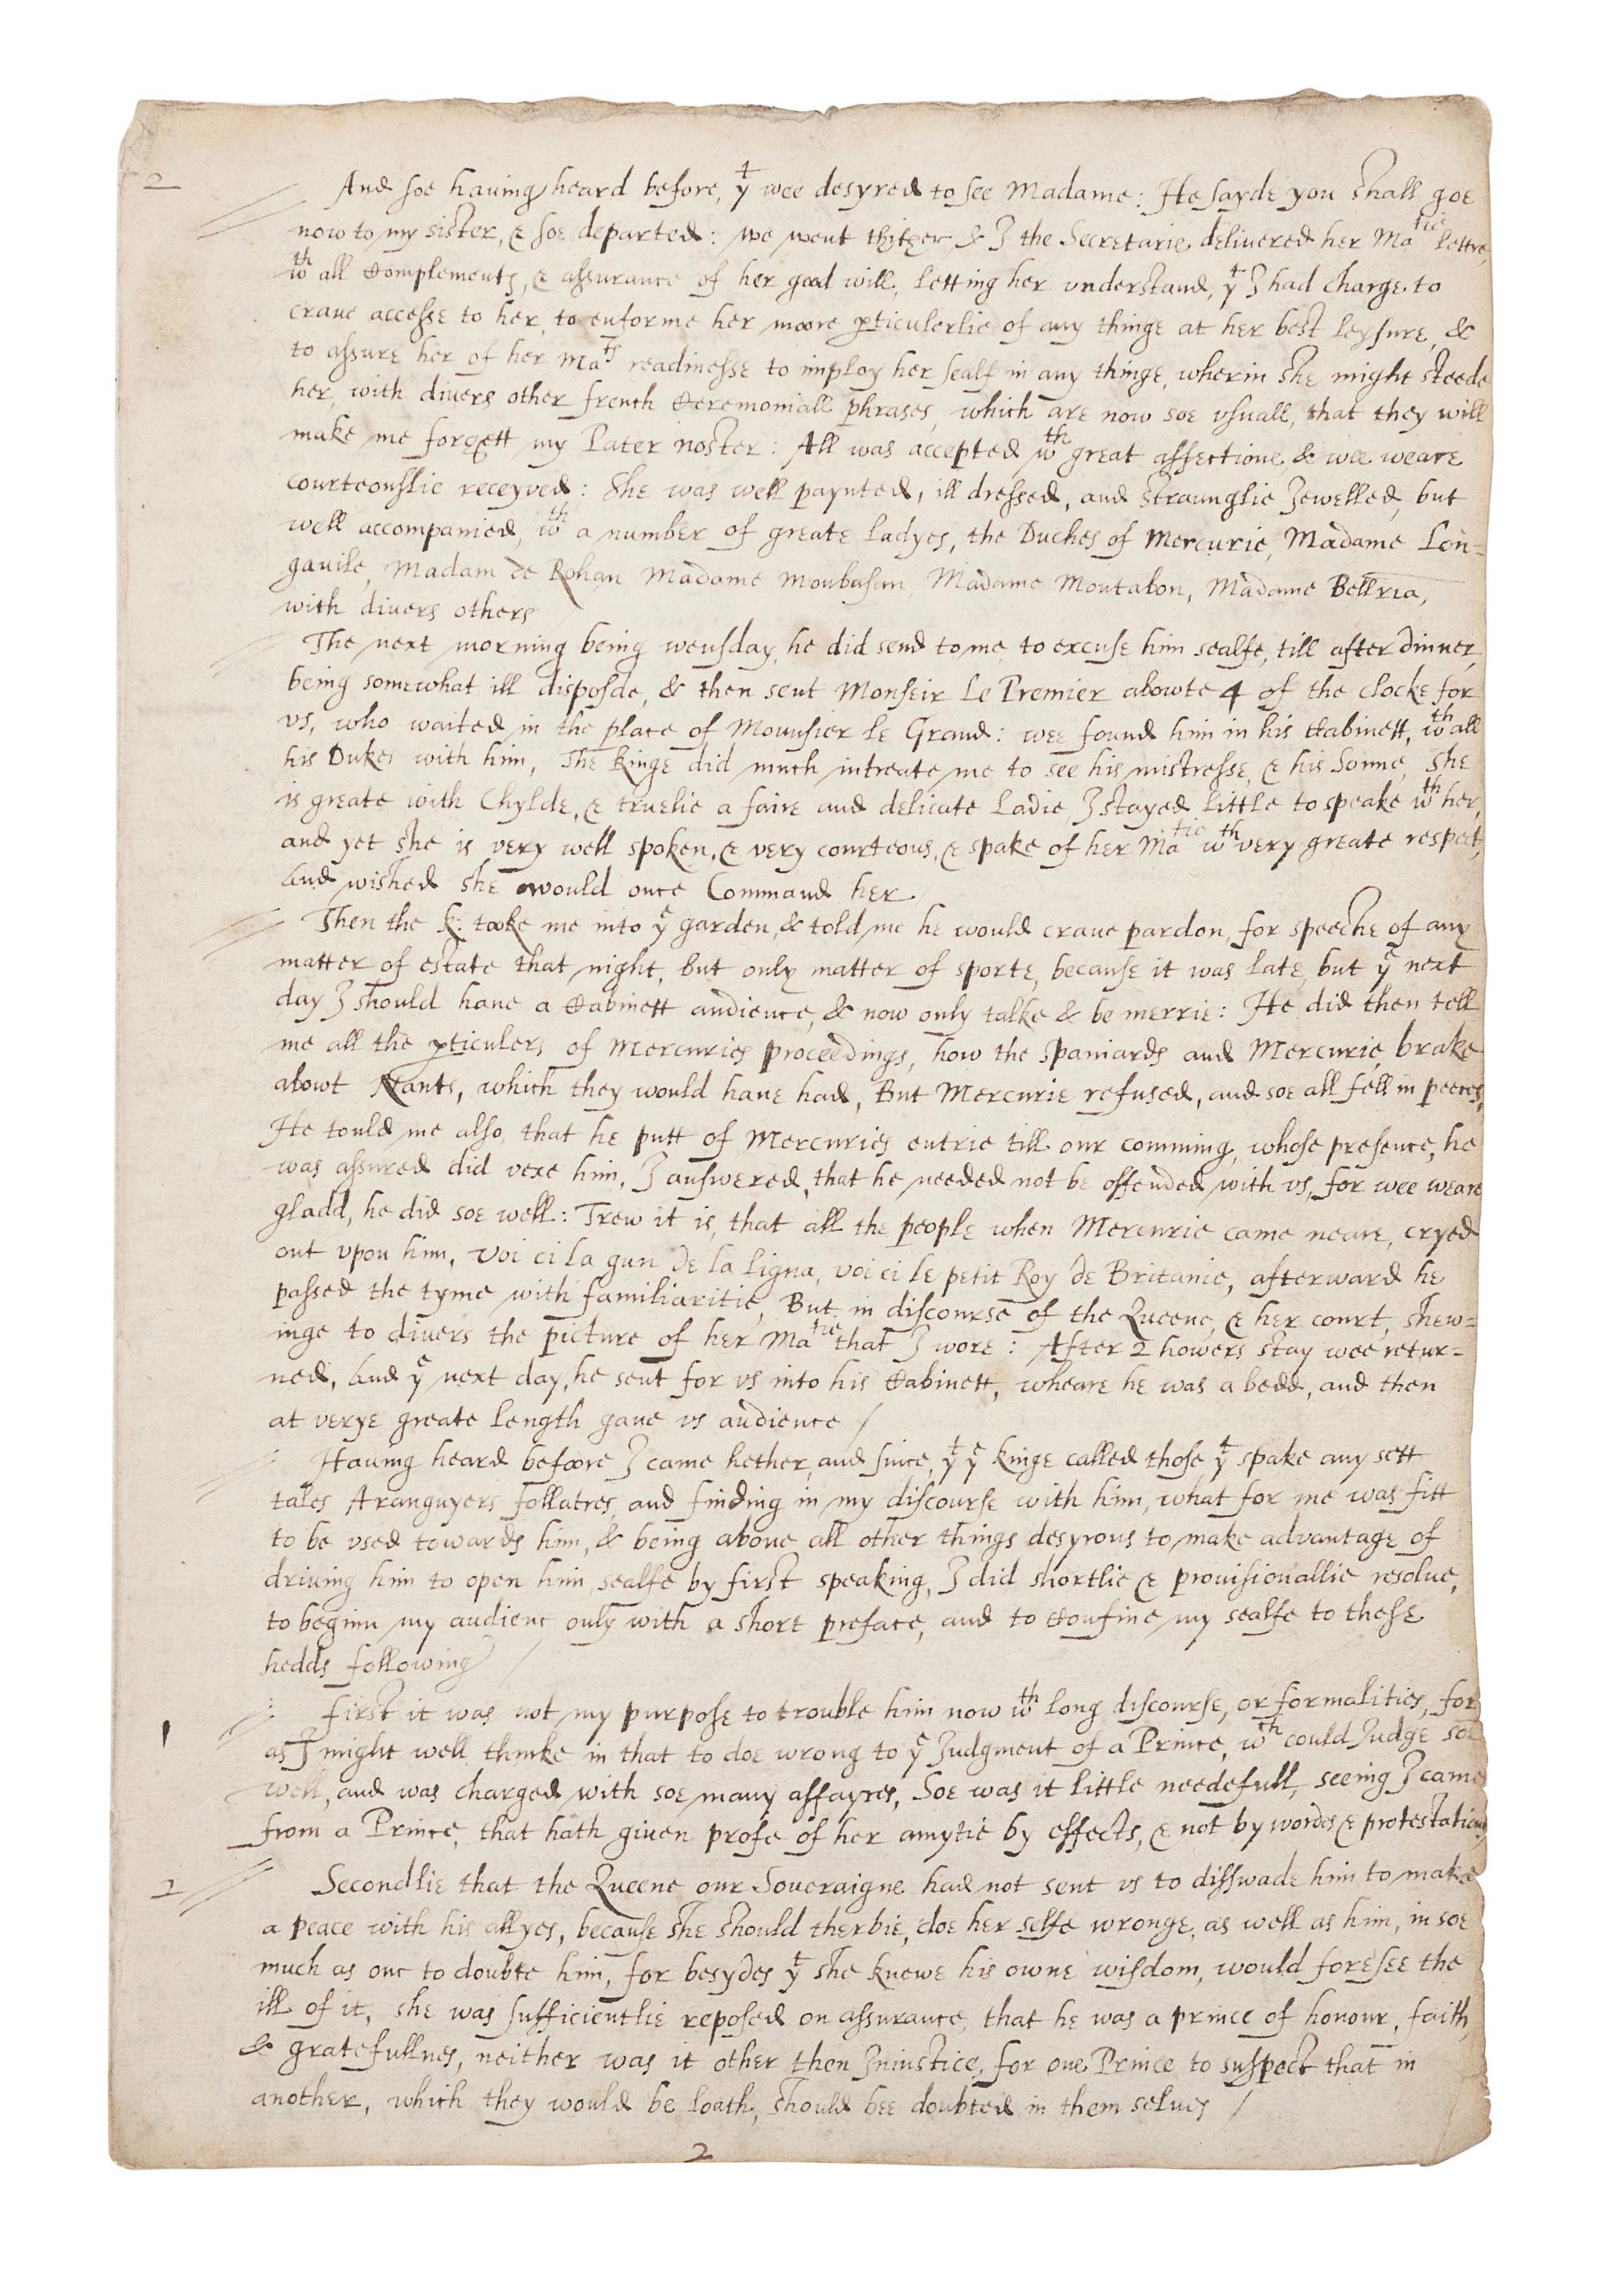 2
And soe hauing heard before, yt wee desyred to see Madame: He sayde you shall goe
now to my sister, & soe departed: we went thither, & I the Secretarie delivered her Matie lettre,
wth all Complements, & assurance of her good will, letting her vnderstand, yt I had charge to
craue accesse to her, to enforme her moore pticulerlie of any thinge at her best leysure, &
to assure her of her Mats readinesse to imploy her sealf in any thinge, wherin she might steede
her, with divers other french Ceremoniall phrases, which are now soe vsuall, that they will
make me forgett my Pater noster: All was accepted wth great affectione & wee weare
courteouslie receyved: She was well paynted, ill dressed, and straunglie Jewelled, but
well accompanied, wth a number of greate Ladyes, the Duches of Mercurie, Madame Lon=
gauile, Madam de Rohan Madame Monbasan, Madame Montabon, Madame Bellria,
with divers others
The next morning being wensday, he did send to me, to excuse him sealfe, till after dinner,
being somewhat ill disposde, & then sent Monseir Le Premier abowte 4 of the clocke for
vs, who waited in the place of Mounsier Le Grand: wee found him in his Cabinett, wth all
his Dukes with him, The Kinge did much intreate me to see his mistresse, & his Sonne, She
is greate with Chylde, & truelie a faire and delicate Ladie, I stayed little to speake wth her,
and yet she is very well spoken, & very courteous, & spake of her Matie wth very greate respect,
And wished she would once Command her
Then the K: tooke me into ye garden, & told me he would craue pardon, for speeche of any
matter of estate that night, but only matter of sporte, because it was late, but ye next
day I should haue a Cabinett audience, & now only talke & be merrie: He did then tell
me all the pticulers of Mercuries proceedings, how the Spaniards and Mercurie, brake
abowt Nants, which they would haue had, But Mercurie refused, and soe all fell in peeces,
He tould me also, that he putt of Mercuries entrie till our comming, whose presence, he
was assured did vexe him, I answered, that he needed not be offended with vs, for wee weare
gladd, he did soe well: Trew it is, that all the people when Mercurie came neare, cryed
out vpon him, Voi ci la gun de la ligna, voi ci le petit Roy de Britanie, afterward he
passed the tyme with familiaritie, But in discourse of the Queene, & her court, shew=
inge to divers the picture of her Matie that I wore: After 2 howers stay wee retur=
ned, And ye next day, he sent for vs into his Cabinett, wheare he was a bedd, and then
at verye greate length gaue vs audience /
Hauing heard befoore I came hether, and since, yt ye kinge called those yt spake any sett
tales Aranguyers follatres, and finding in my discourse with him, what for me was fitt
to be vsed towards him, & being aboue all other things desyrous to make advantage of
driuing him to open him sealfe by first speaking, I did shortlie & prouisionallie resolue,
to beginn my audienc only with a short preface, and to Confine my sealfe to these
hedds following /
1
first it was not my purpose to trouble him now wth long discourse, or formalities, for
as I might well thinke in that to doe wrong to ye Judgment of a Prince, wch could Judge soe
well, and was charged with soe many affayres, Soe was it little needefull, seeing I came
from a Prince, that hath giuen profe of her amytie by effects, & not by words & protestations
2
Secondlie that the Queene our Soueraigne had not sent vs to disswade him to make
a peace with his allyes, because she should therbie, doe her selfe wronge, as well as him, in soe
much as onc to doubte him, for besydes yt she knewe his owne wisdom, would foresee the
ill of it, she was sufficientlie reposed on assurance, that he was a prince of honour, faith,
& gratefullnes, neither was it other then Iniustice, for one Prince to suspect that in
another, which they would be loath, should bee doubted in them selues /
2